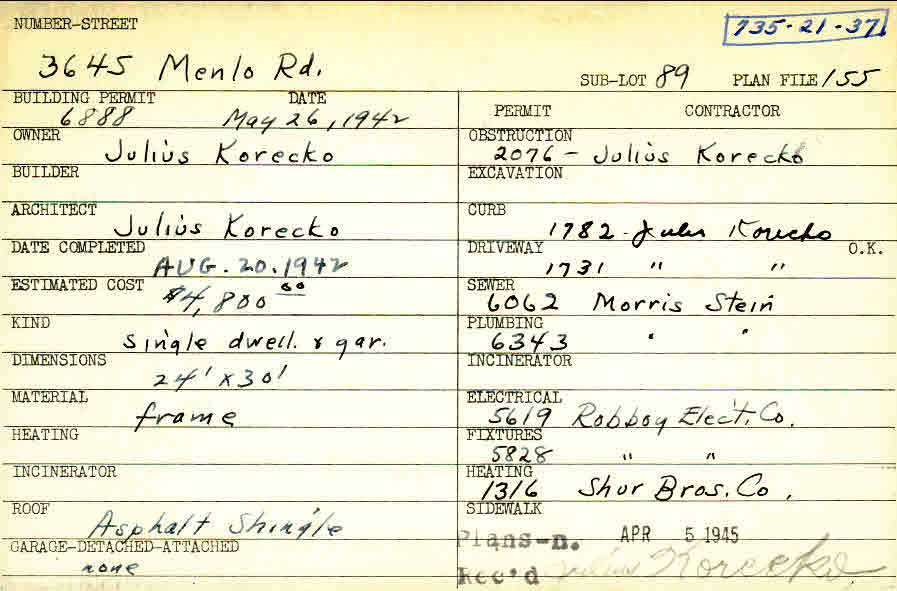 NUMBER-STREET
735-21-37
3645 Menlo Rd.
SUB-LOT 89 PLAN FILE 155
BUILDING PERMIT DATE
6888 May 26, 1942
OWNER
Julius Korecko
BUILDER
ARCHITECT
Julius Korecko
DATE COMPLETED
AUG. 20. 1942
ESTIMATED COST
$4,800 00
KIND
single dwell. & gar.
DIMENSIONS
24' x 30'
MATERIAL
frame
HEATING
INCINERATOR
ROOF
Asphalt Shingle
GARAGE-DETACHED-ATTACHED
none
PERMIT CONTRACTOR
OBSTRUCTION
2076 - Julius Korecko
EXCAVATION
CURB
1782 - Jules Korecko
DRIVEWAY O.K.
1731 " "
SEWER
6062 Morris Stein
PLUMBING
6343 " "
INCINERATOR
ELECTRICAL
5619 Robboy Elect. Co.
FIXTURES
5828 " "
HEATING
1316 Shur Bros. Co.
SIDEWALK
Plans-n. APR 5 1945
Rec'd Julius Korecko